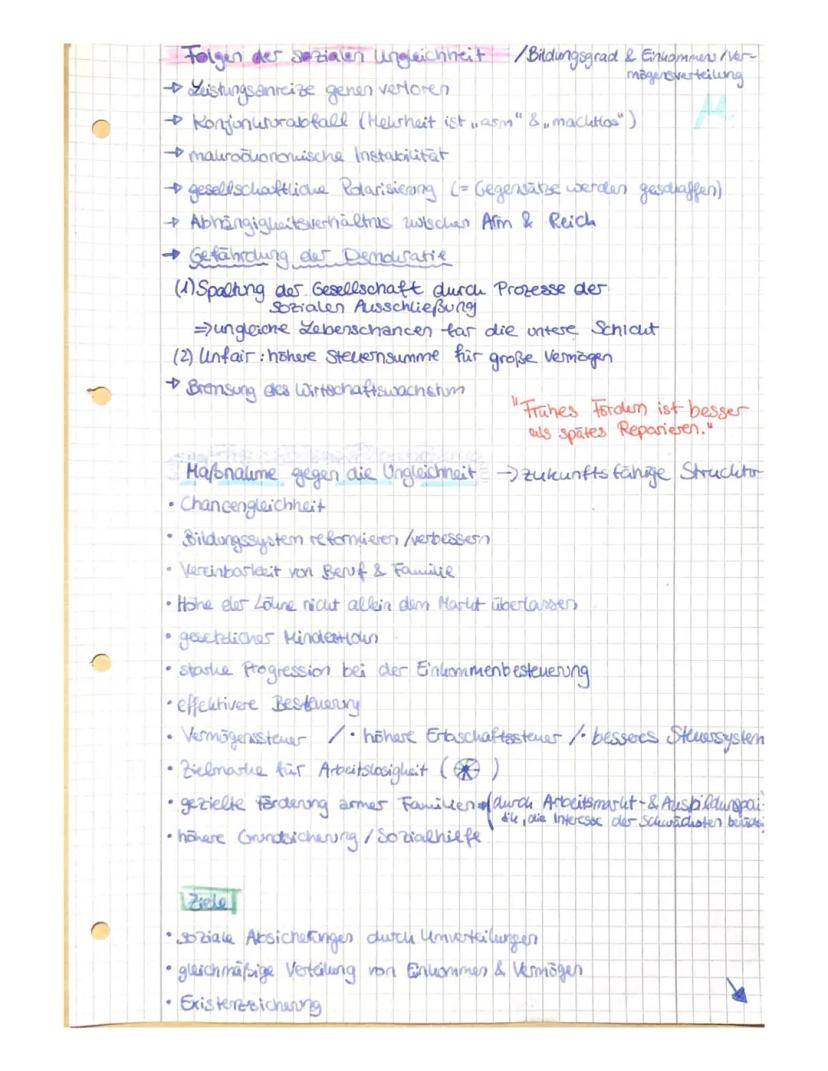 Folgen der sozialen Ungleichheit /Bildungsgrad & Einkommen/Ver-
mögensverteilung
→ Leistungsanreize gehen verloren
→ Konjunkturabfall (Mehrheit ist „arm" & „machtlos")
→ makroökonomische Instabilität
→ gesellschaftliche Polarisierung (= Gegensätze werden geschaffen)
→ Abhängigkeitsverhältnis zwischen Arm & Reich
→ Gefährdung der Demokratie
(1) Spaltung der Gesellschaft durch Prozesse der
sozialen Ausschließung
⇒ ungleiche Lebenschancen für die untere Schicht
(2) Unfair: höhere Steuernsumme für große Vermögen
→ Bremsung des Wirtschaftswachstum
"Frühes Fördern ist besser
als spätes Reparieren."
Maßnahme gegen die Ungleichheit → zukunftsfähige Strucktur
• Chancengleichheit
• Bildungssystem reformieren/verbessern
• Vereinbarkeit von Beruf & Familie
• Höhe der Löhne nicht allein dem Markt überlassen
• gesetzlicher Mindestlohn
• starke Progression bei der Einkommenbesteuerung
• effektivere Besteuerung
• Vermögenssteuer /• höhere Erbschaftssteuer /• besseres Steuersystem
• Zielmarke für Arbeitslosigkeit ( )
• gezielte Förderung armer Familien (durch Arbeitsmarkt- & Ausbildungspoli-
die Interesse der Schwächsten
• höhere Grundsicherung / Sozialhilfe
Ziele
• soziale Absicherungen durch Umverteilungen
• gleichmäßige Verteilung von Einkommen & Vermögen
• Existenzsicherung